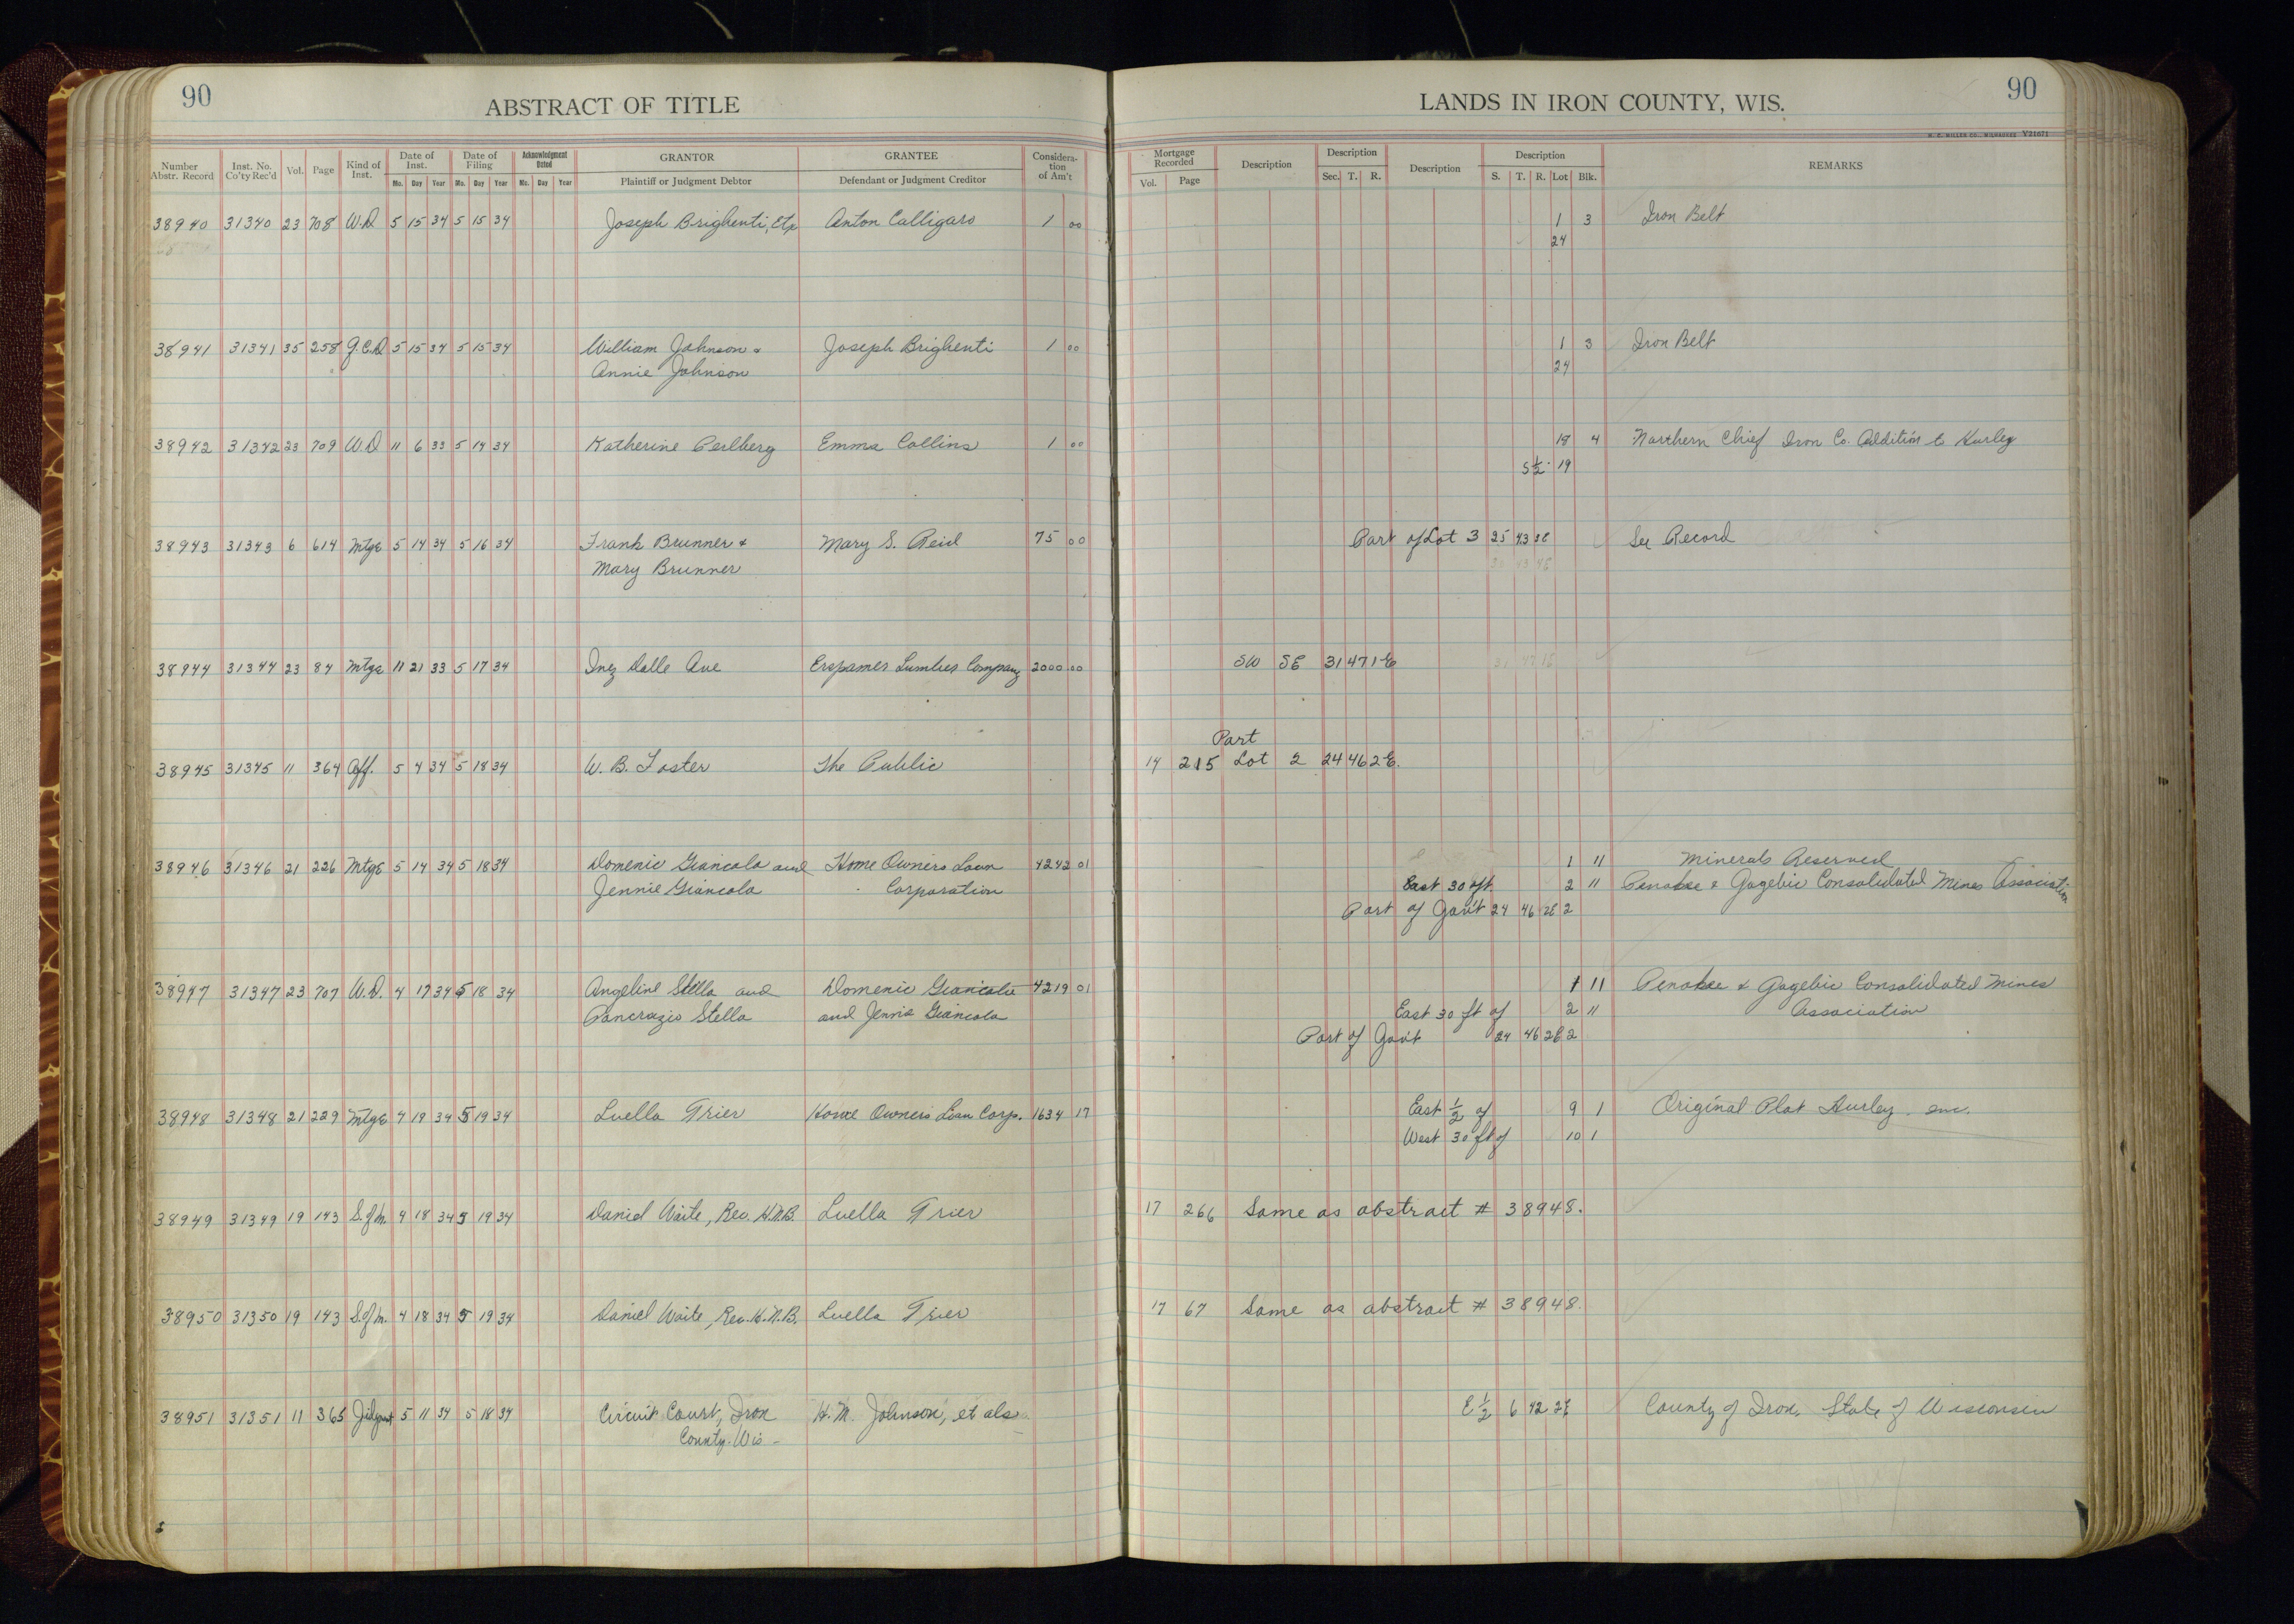 90
ABSTRACT OF TITLE
LANDS IN IRON COUNTY, WIS.
90
H. C. MILLER CO., MILWAUKEE V21671
Number Abstr. Record Inst. No. Co'ty Rec'd Vol. Page Kind of Inst. Date of Inst. Mo. Day Year Date of Filing Mo. Day Year Acknowledgment Dated Mo. Day Year GRANTOR Plaintiff or Judgment Debtor GRANTEE Defendant or Judgment Creditor Considera-tion of Am't
Mortgage Recorded Vol. Page Description Description Sec. T. R. Description Description S. T. R. Lot Blk. REMARKS
38940 31340 23 708 W.D 5 15 34 5 15 34 Joseph Brighenti, Etx Anton Calligaro 1 00 1 3 Iron Belt
24
38941 31341 35 258 Q.C.D 5 15 34 5 15 34 William Johnson & Joseph Brighenti 1 00 1 3 Iron Belt
Annie Johnson 24
38942 31342 23 709 W.D 11 6 33 5 14 34 Katherine Perlberg Emma Collins 1 00 18 4 Northern Chief Iron Co. Addition to Hurley
S 1/2 19
38943 31343 6 614 Mtge 5 14 34 5 16 34 Frank Brunner & Mary S. Reid 75 00 Part of Lot 3 25 43 3E See Record
Mary Brunner
38944 31344 23 84 Mtge 11 21 33 5 17 34 Inez Dalle Ave Erspamer Lumber Company 2000 00 SW SE 31 47 1E
Part
38945 31345 11 364 Aff. 5 4 34 5 18 34 W. B. Foster The Public 14 215 Lot 2 24 46 2E.
38946 31346 21 226 Mtge 5 14 34 5 18 34 Domenic Giancola and Home Owners Loan 4242 01 1 11 Minerals Reserved
Jennie Giancola Corporation East 30 ft. 2 11 Penokee & Gogebic Consolidated Mines Association
Part of Gov't 24 46 2E 2
38947 31347 23 707 W.D. 4 17 34 5 18 34 Angeline Stella and Domenic Giancola 4219 01 1 11 Penokee & Gogebic Consolidated Mines
Pancrazio Stella and Jennie Giancola East 30 ft of 2 11 Association
Part of Gov't 24 46 2E 2
38948 31348 21 229 Mtge 4 19 34 5 19 34 Luella Trier Home Owners Loan Corp. 1634 17 East 1/2 of 9 1 Original Plat Hurley
West 30 ft of 10 1
38949 31349 19 143 S.of M. 4 18 34 5 19 34 Daniel Waite, Rec. H.N.B. Luella Trier 17 266 Same as abstract # 38948.
38950 31350 19 143 S.of M. 4 18 34 5 19 34 Daniel Waite, Rec. H.N.B. Luella Trier 17 67 Same as abstract # 38948.
38951 31351 11 365 5 11 34 5 18 34 Circuit Court, Iron H. M. Johnson, et als E 1/2 6 42 2E County of Iron, State of Wisconsin
County. Wis -